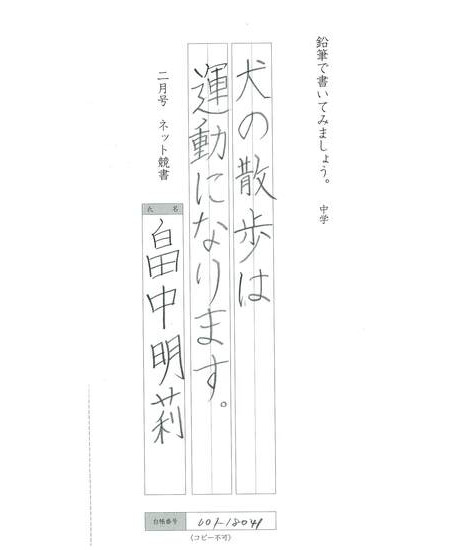 鉛筆で書いてみましょう。 中学
犬の散歩は
運動になります。
二月号 ネット競書
氏名
畠中明莉
台帳番号 001-18041
(コピー不可)